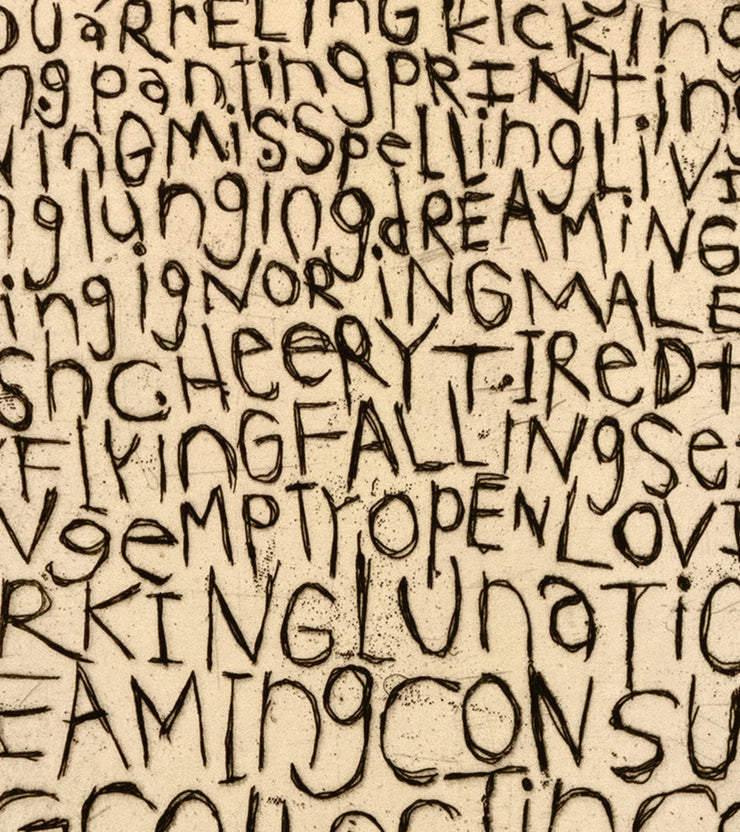 QUaRrELInG kIcKIng
ng pantingPRINting
VinGMiSSpeLLingLiVI
nglungIngdREAMiNG
ingigNORiNGMALE
ShcHeeRYTIReDt
FlYInGFALLINgSe
VgeMPTYOPENLOVI
RKINGLUnaTiC
EAMIngCONSU